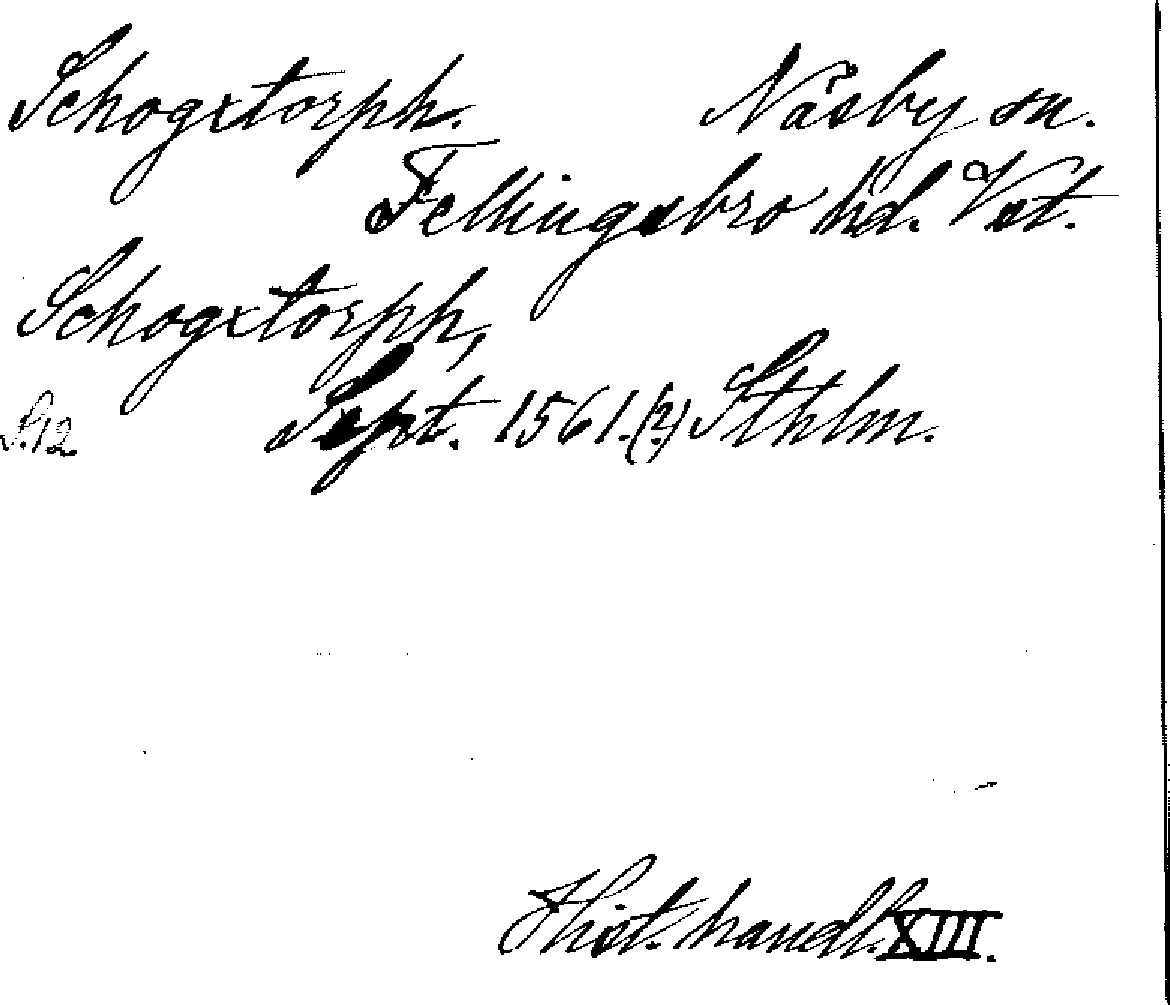 Schogxtorph. Näsby sn.
Fellingsbro hd. Vst.
Schogxtorph,
S. 12 Sept. 1561.(?) Sthlm.
Hist. handl. XIII.